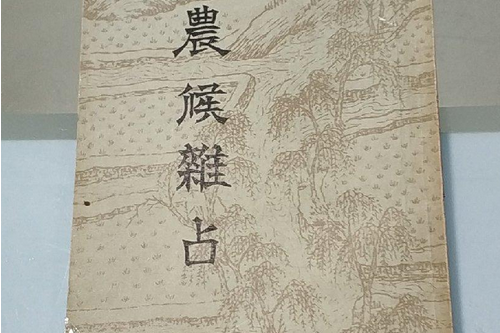 農候雜占